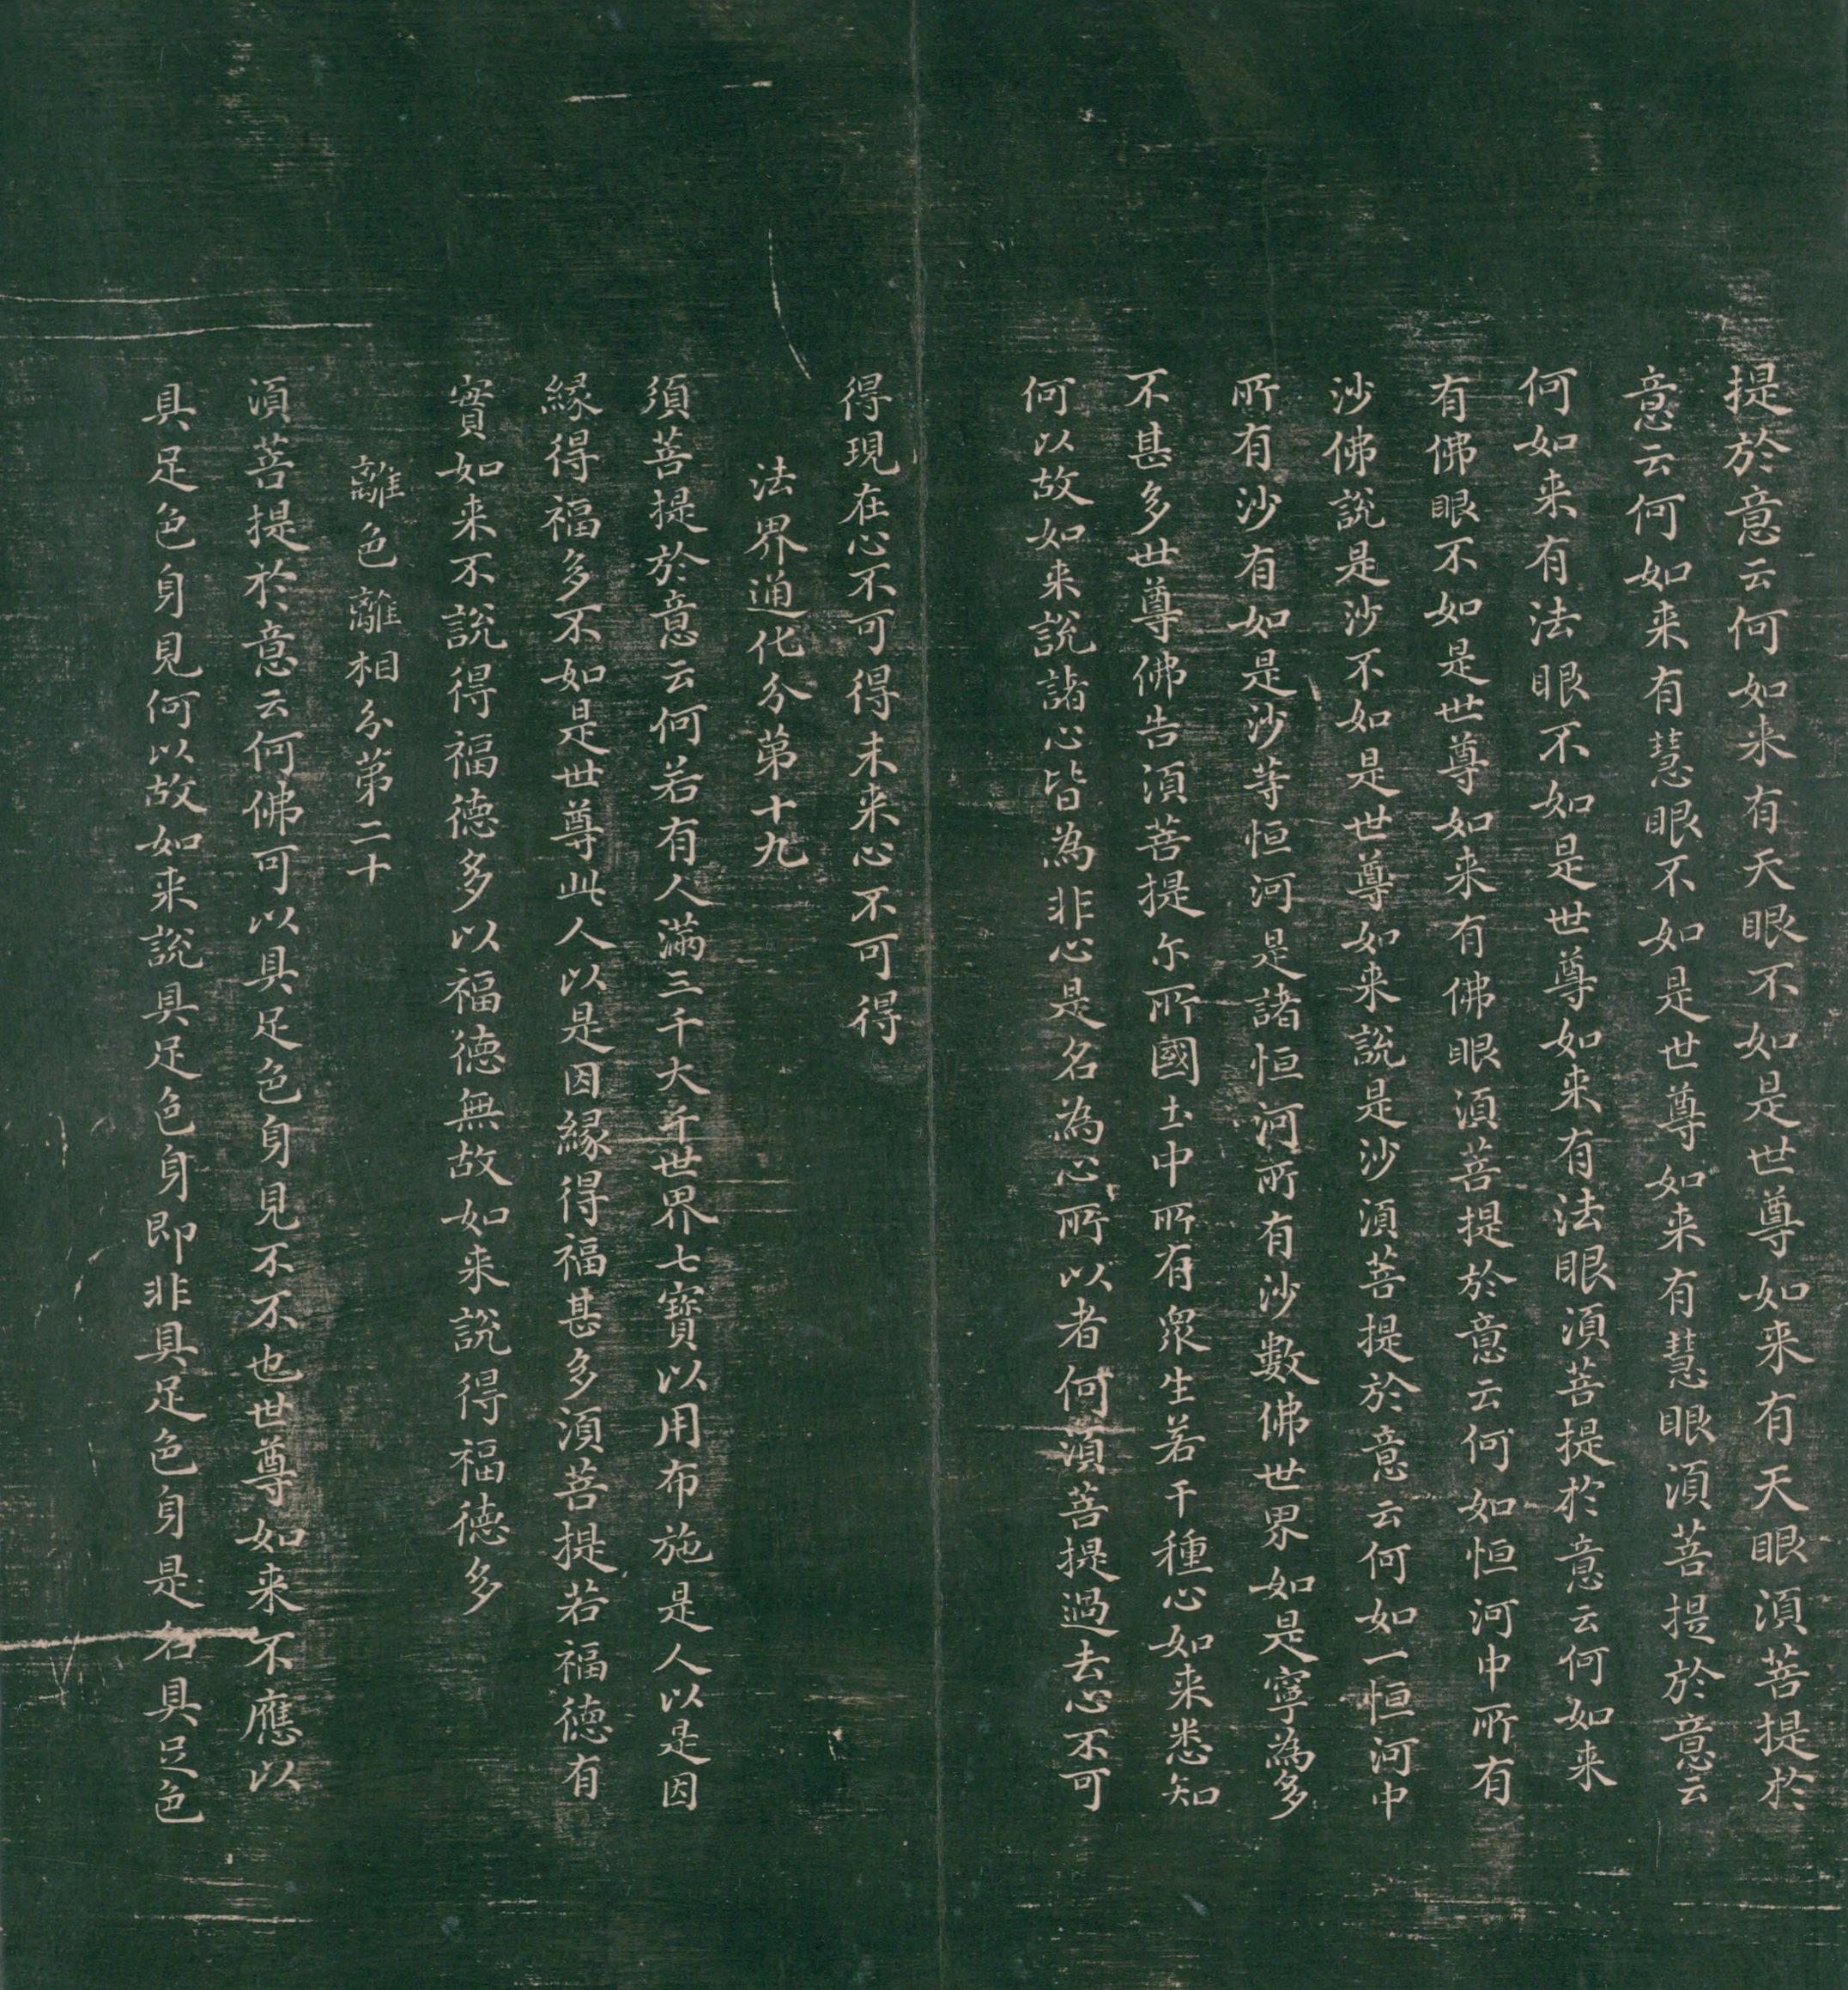 提於意云何如来有天眼不如是世尊如来有天眼須菩提於
意云何如来有慧眼不如是世尊如来有慧眼須菩提於意云
何如来有法眼不如是世尊如来有法眼須菩提於意云何如来
有佛眼不如是世尊如来有佛眼須菩提於意云何如恒河中所有
沙佛說是沙不如是世尊如来說是沙須菩提於意云何如一恒河中
所有沙有如是沙等恒河是諸恒河所有沙數佛世界如是寧為多
不甚多世尊佛告須菩提尔所國土中所有衆生若干種心如来悉知
何以故如来說諸心皆為非心是名為心所以者何須菩提過去心不可
得現在心不可得未来心不可得
法界通化分第十九
須菩提於意云何若有人滿三千大千世界七寶以用布施是人以是因
緣得福多不如是世尊此人以是因緣得福甚多須菩提若福德有
實如来不說得福德多以福德無故如来說得福德多
離色離相分第二十
須菩提於意云何佛可以具足色身見不不也世尊如来不應以
具足色身見何以故如来說具足色身即非具足色身是名具足色